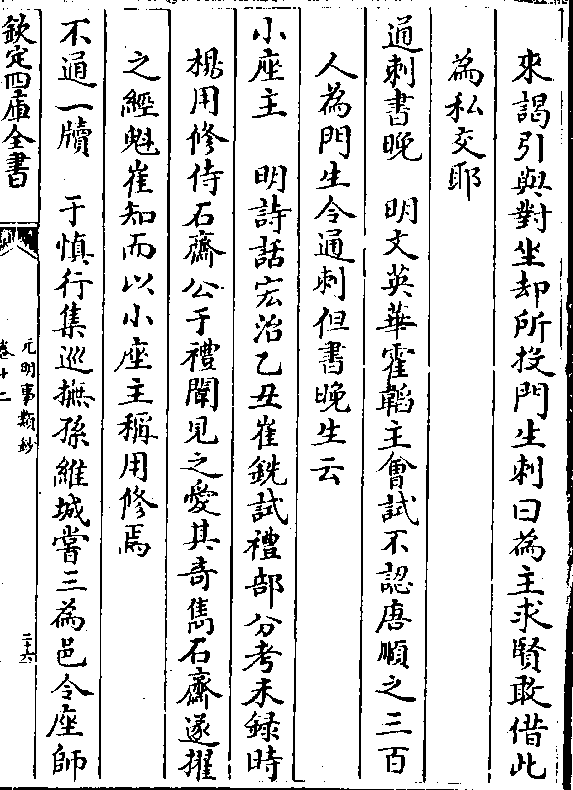 來謁引與對坐却所投門生刺曰為主求賢敢借此
為私交耶
通刺書晚　明文英華霍韜主會試不認唐順之三百
人為門生令通刺但書晚生云
小座主　明詩話宏治乙丑崔銑試禮部分考未録時
楊用修侍石齋公于禮闈見之愛其奇雋石齋遂擢
之經魁崔知而以小座主稱用修焉
不通一牘　于慎行集巡撫孫維城嘗三為邑令座師
欽定四庫全書
元明事類鈔
卷十二
二十六